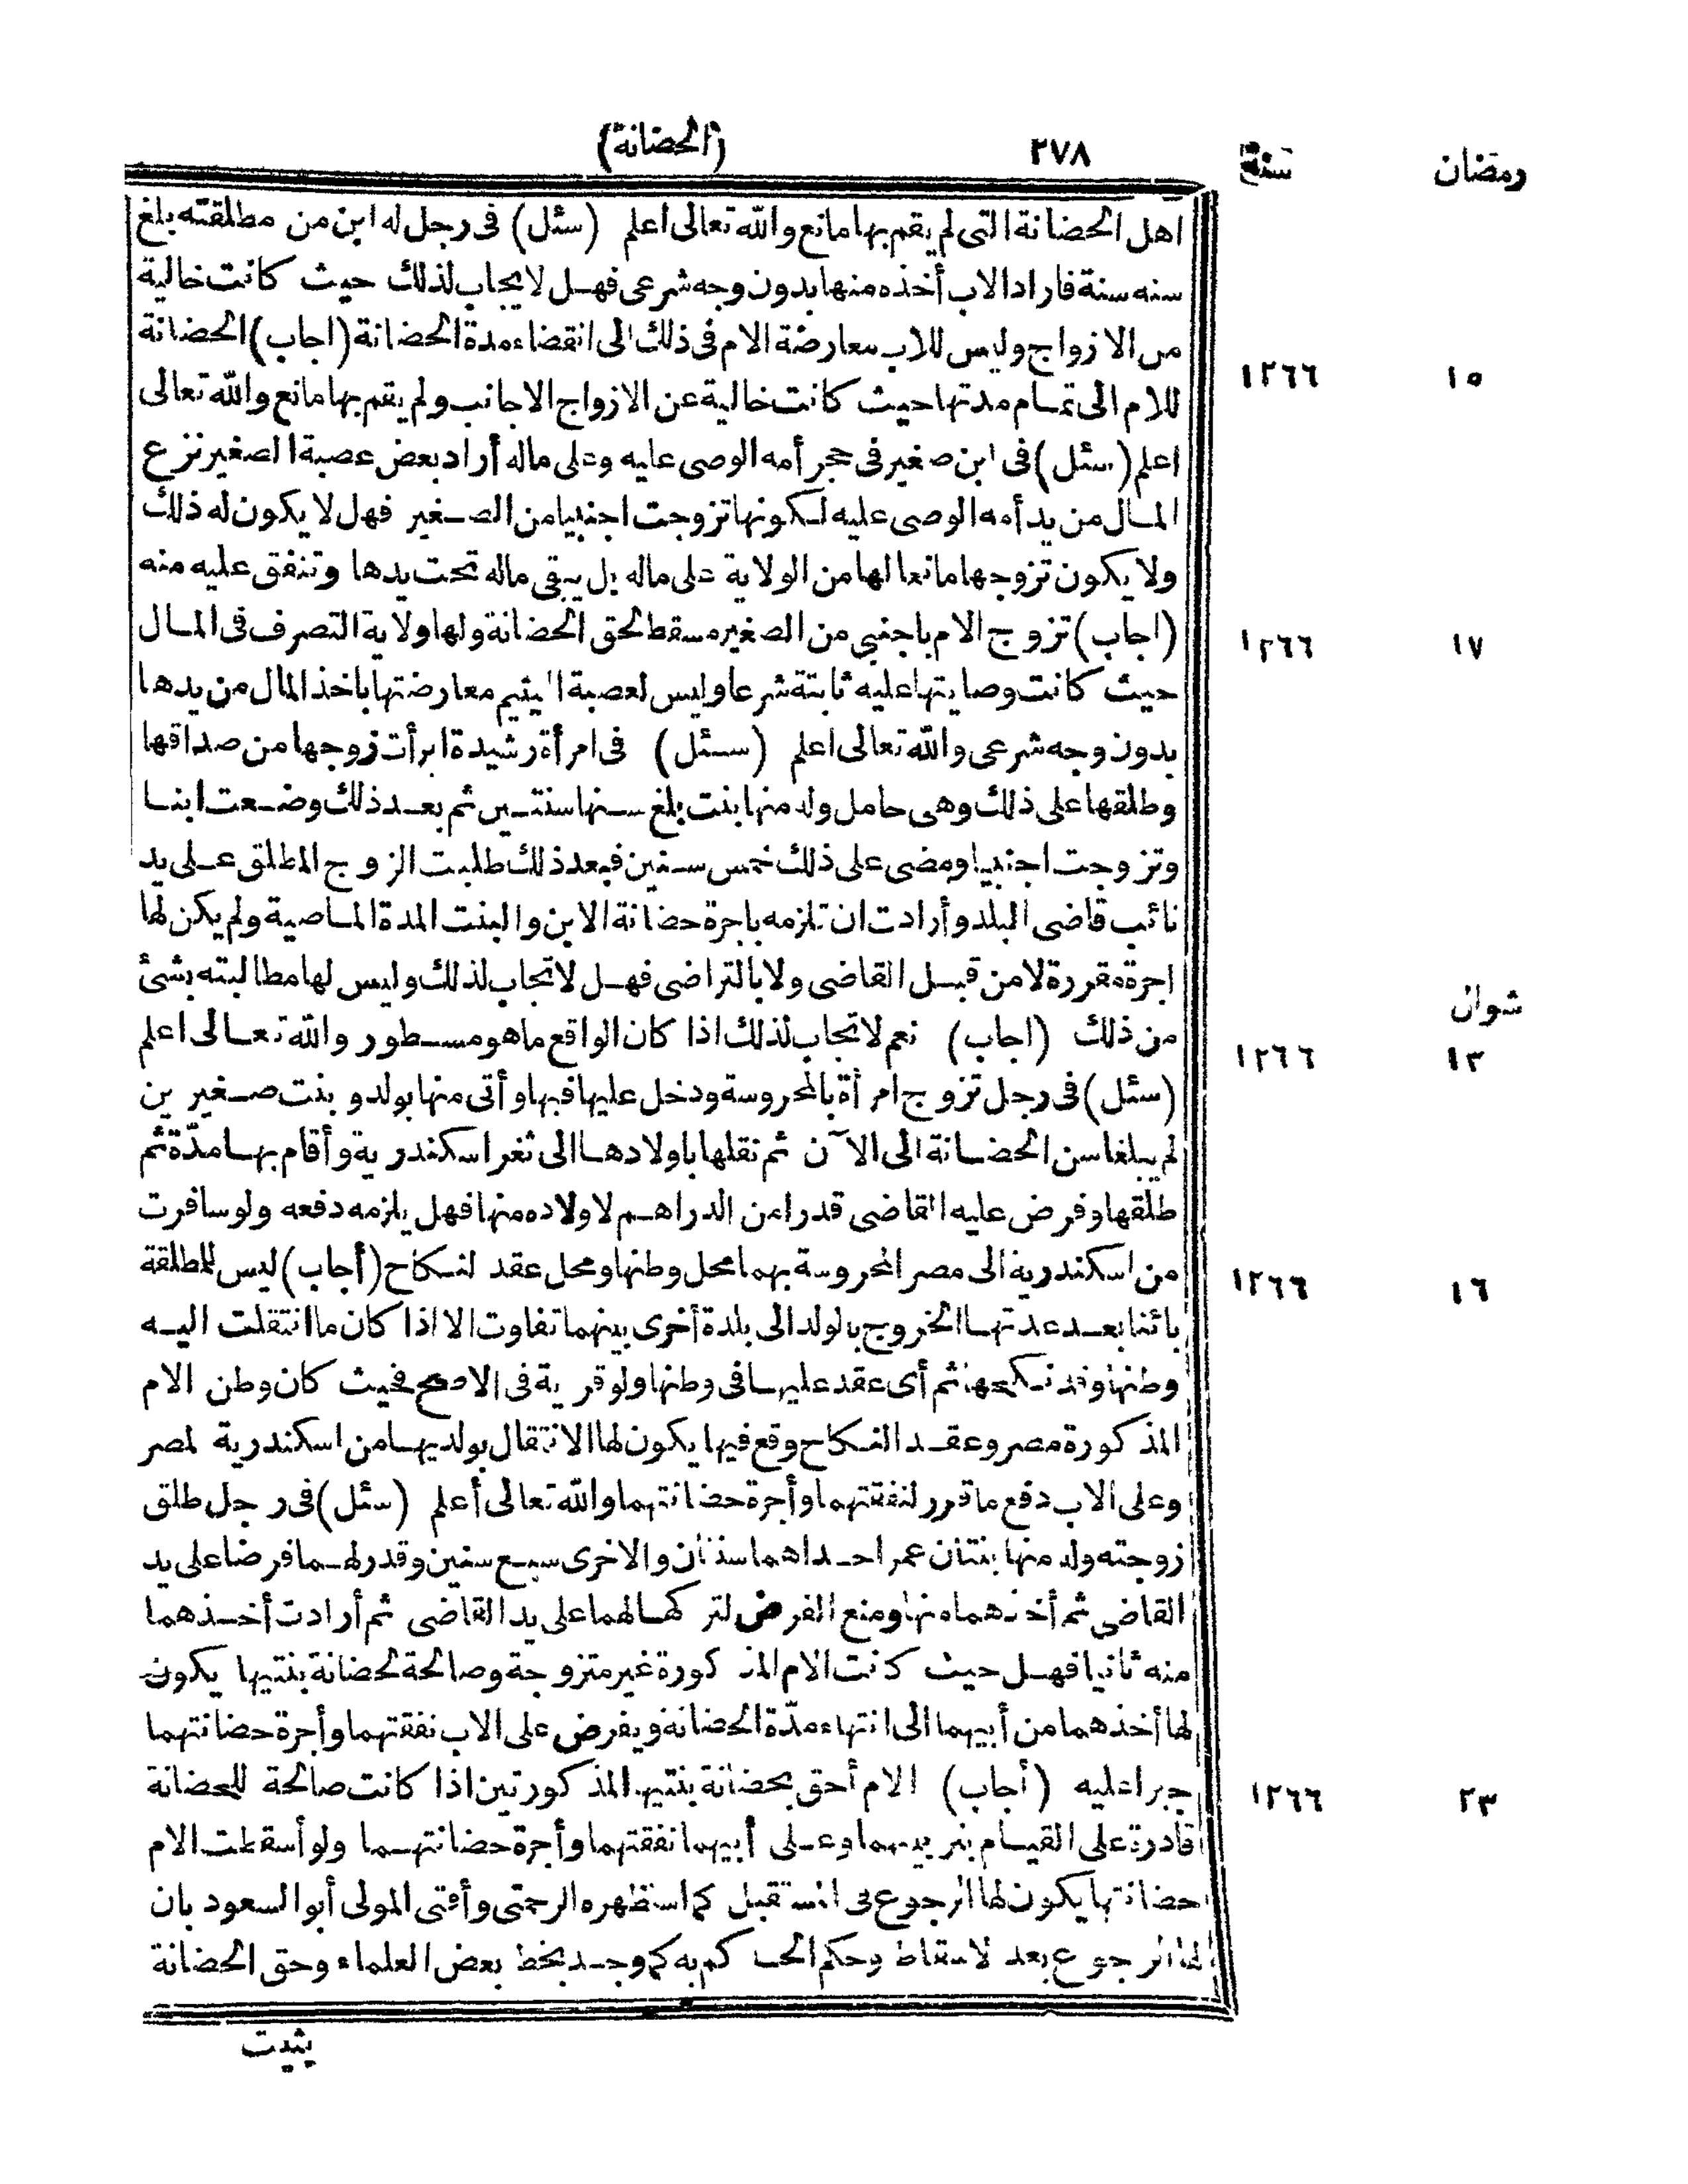 رمضان سنة ٢٧٨ (الحضانة)
اهل الحضانة التى لم يقم بها مانع والله تعالى اعلم (سئل) فى رجل له ابن من مطلقته بلغ
سنه سنة فاراد الاب أخذه منها بدون وجه شرعى فهل لا يجاب لذلك حيث كانت خالية
من الازواج وليس للاب معارضة الام فى ذلك الى انقضاء مدة الحضانة (اجاب) الحضانة
١٥ ١٢٦٦
للام الى تمام مدتها حيث كانت خالية عن الازواج الاجانب ولم يقم بها مانع والله تعالى
اعلم (سئل) فى ابن صغير فى حجر أمه الوصى عليه وعلى ماله أراد بعض عصبة الصغير نزع
المال من يد أمه الوصى عليه لكونها تزوجت اجنبيا من الصغير فهل لا يكون له ذلك
ولا يكون تزوجها مانعا لها من الولاية على ماله بل يبقى ماله تحت يدها وتنفق عليه منه
(اجاب) تزوج الام باجنبي من الصغير مسقط لحق الحضانة ولها ولاية التصرف فى المال
١٧ ١٢٦٦
حيث كانت وصايتها عليه ثابتة شرعا وليس لعصبة اليتيم معارضتها باخذ المال من يدها
بدون وجه شرعى والله تعالى اعلم (سئل) فى امرأة رشيدة ابرأت زوجها من صداقها
وطلقها على ذلك وهى حامل وله منها بنت بلغ سنها سنتين ثم بعد ذلك وضعت ابنا
وتزوجت اجنبيا ومضى على ذلك خمس سنين فبعد ذلك طلبت الزوج المطلق على يد
نائب قاضى البلد وأرادت ان تلزمه باجرة حضانة الابن والبنت المدة الماضية ولم يكن لها
اجرة مقررة لا من قبل القاضى ولا بالتراضى فهل لا تجاب لذلك وليس لها مطالبته بشئ
شوال
من ذلك (اجاب) نعم لا تجاب لذلك اذا كان الواقع ما هو مسطور والله تعالى اعلم
١٣ ١٢٦٦
(سئل) فى رجل تزوج امرأة بالمحروسة ودخل عليها فيها وأتى منها بولد وبنت صغيرين
لم يبلغا سن الحضانة الى الآن ثم نقلها باولادها الى ثغر اسكندرية وأقام بها مدّة ثم
طلقها وفرض عليه القاضى قدرا من الدراهم لاولاده منها فهل يلزمه دفعه ولو سافرت
من اسكندرية الى مصر المحروسة بهما محل وطنها ومحل عقد النكاح (أجاب) ليس للمطلقة
١٦ ١٢٦٦
بائنا بعد عدتها الخروج بالولد الى بلدة أخرى بينهما تفاوت الا اذا كان ما انتقلت اليه
وطنها وقد نكحها ثم أى عقد عليها فى وطنها ولو قرية فى الاصح فحيث كان وطن الام
المذكورة مصر وعقد النكاح وقع فيها يكون لها الانتقال بولديها من اسكندرية لمصر
وعلى الاب دفع ما قرر لنفقتهما وأجرة حضانتهما والله تعالى أعلم (سئل) فى رجل طلق
زوجته وله منها بنتان عمر احداهما سنتان والاخرى سبع سنين وقدر لهما فرضا على يد
القاضى ثم أخذهما منها ومنع الفرض لتركها لهما على يد القاضى ثم أرادت أخذهما
منه ثانيا فهل حيث كانت الام المذكورة غير متزوجة وصالحة لحضانة بنتيها يكون
لها أخذهما من أبيهما الى انتهاء مدّة الحضانة ويفرض على الاب نفقتهما وأجرة حضانتهما
جبرا عليه (أجاب) الام أحق بحضانة بنتيها المذكورتين اذا كانت صالحة للحضانة
٢٣ ١٢٦٦
قادرة على القيام بتربيتهما وعلى أبيهما نفقتهما وأجرة حضانتهما ولو أسقطت الام
حضانتها يكون لها الرجوع فى المستقبل كما استظهره الرحمتى وأفتى المولى أبو السعود بان
لها الرجوع بعد الاسقاط وحكم الحاكم به كما وجد بخط بعض العلماء وحق الحضانة
يثبت